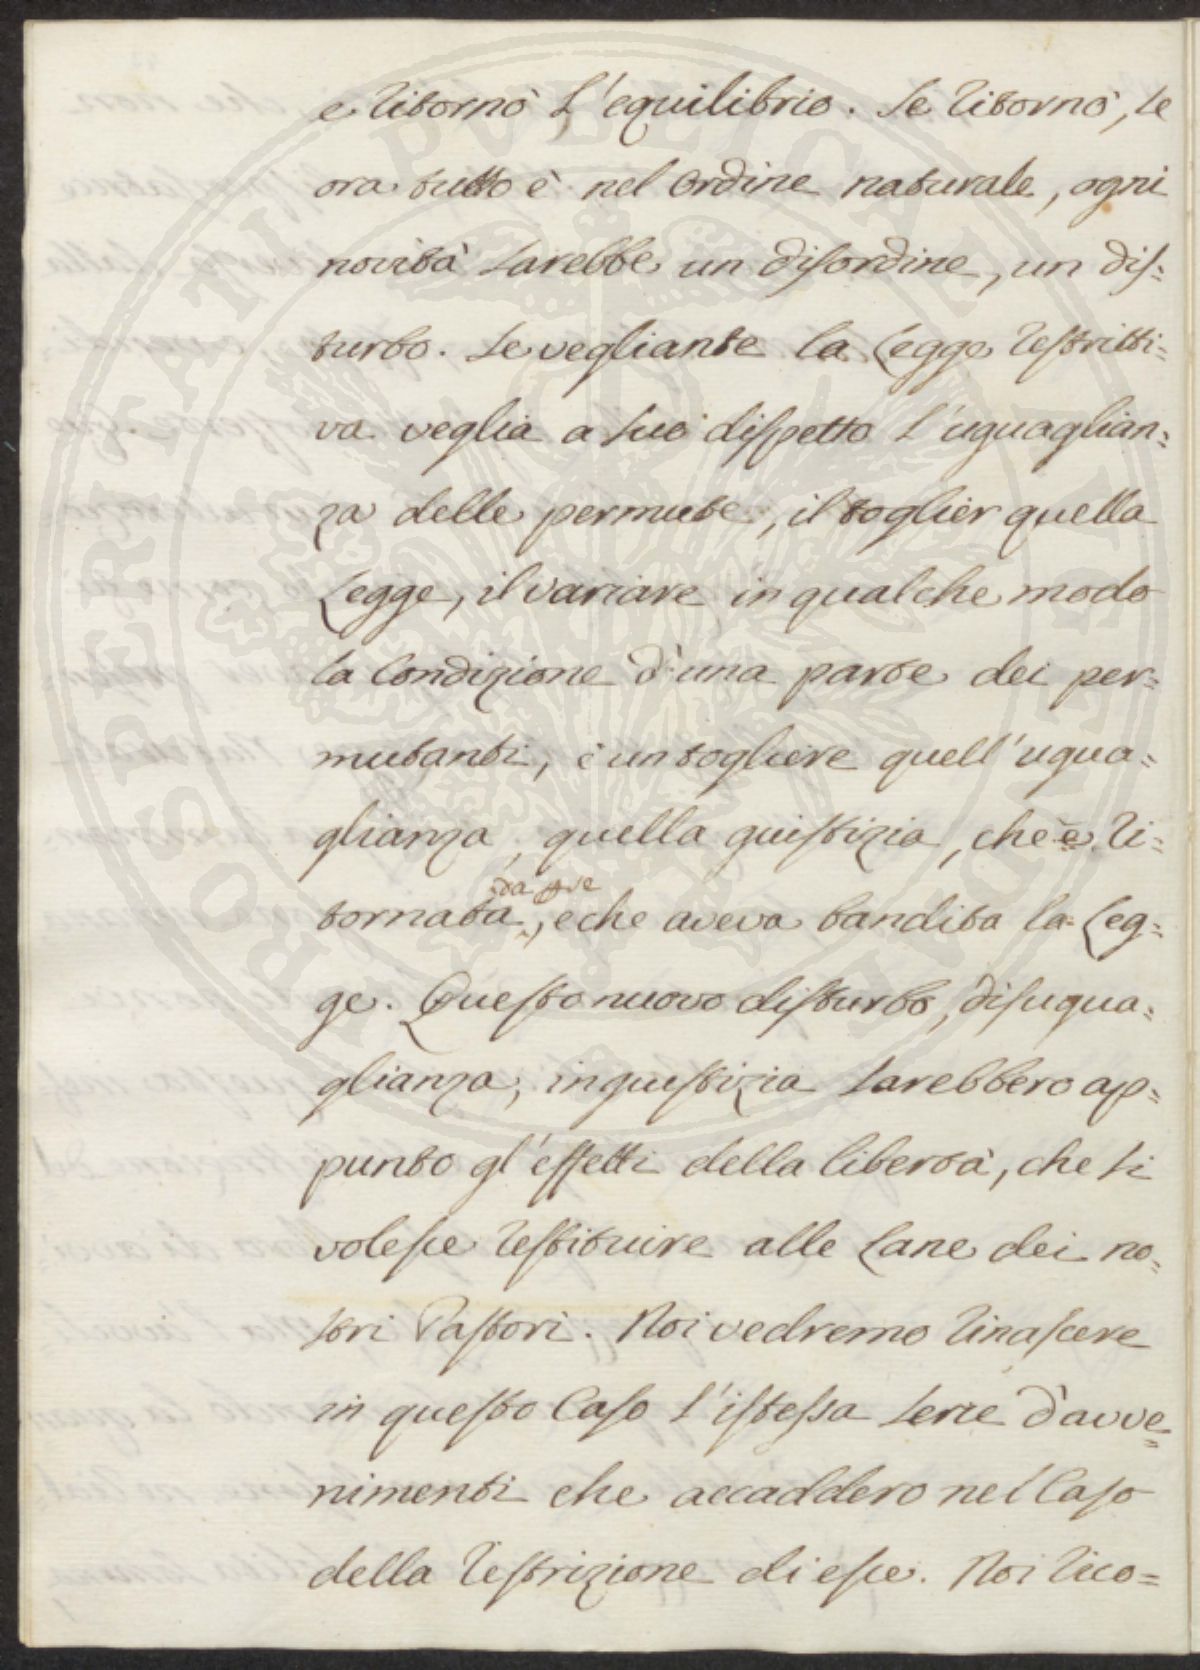 e ritornò l'equilibrio. Se ritornò, se
ora tutto è nel Ordine naturale, ogni
novità sarebbe un disordine, un dis=
turbo. Se vegliante la Legge restritti=
va veglia a suo dispetto l'uguaglian=
za delle permute, il toglier quella
Legge, il variare in qualche modo
la Condizione d'una parte dei per=
mutanti, è un togliere quell'ugua=
glianza, quella giustizia, che è ri=
da se
tornata, e che aveva bandita la Leg=
ge. Questo nuovo disturbo, disugua=
glianza, ingiustizia sarebbero ap=
punto gl'effetti della libertà, che si
volesse restituire alle Lane dei no=
stri Pastori. Noi vedremo rinascere
in questo Caso l'istessa serie d'avve=
nimenti che accaddero nel Caso
della restrizione di esse. Noi rico=
PROSPERITATI PUBLICAE